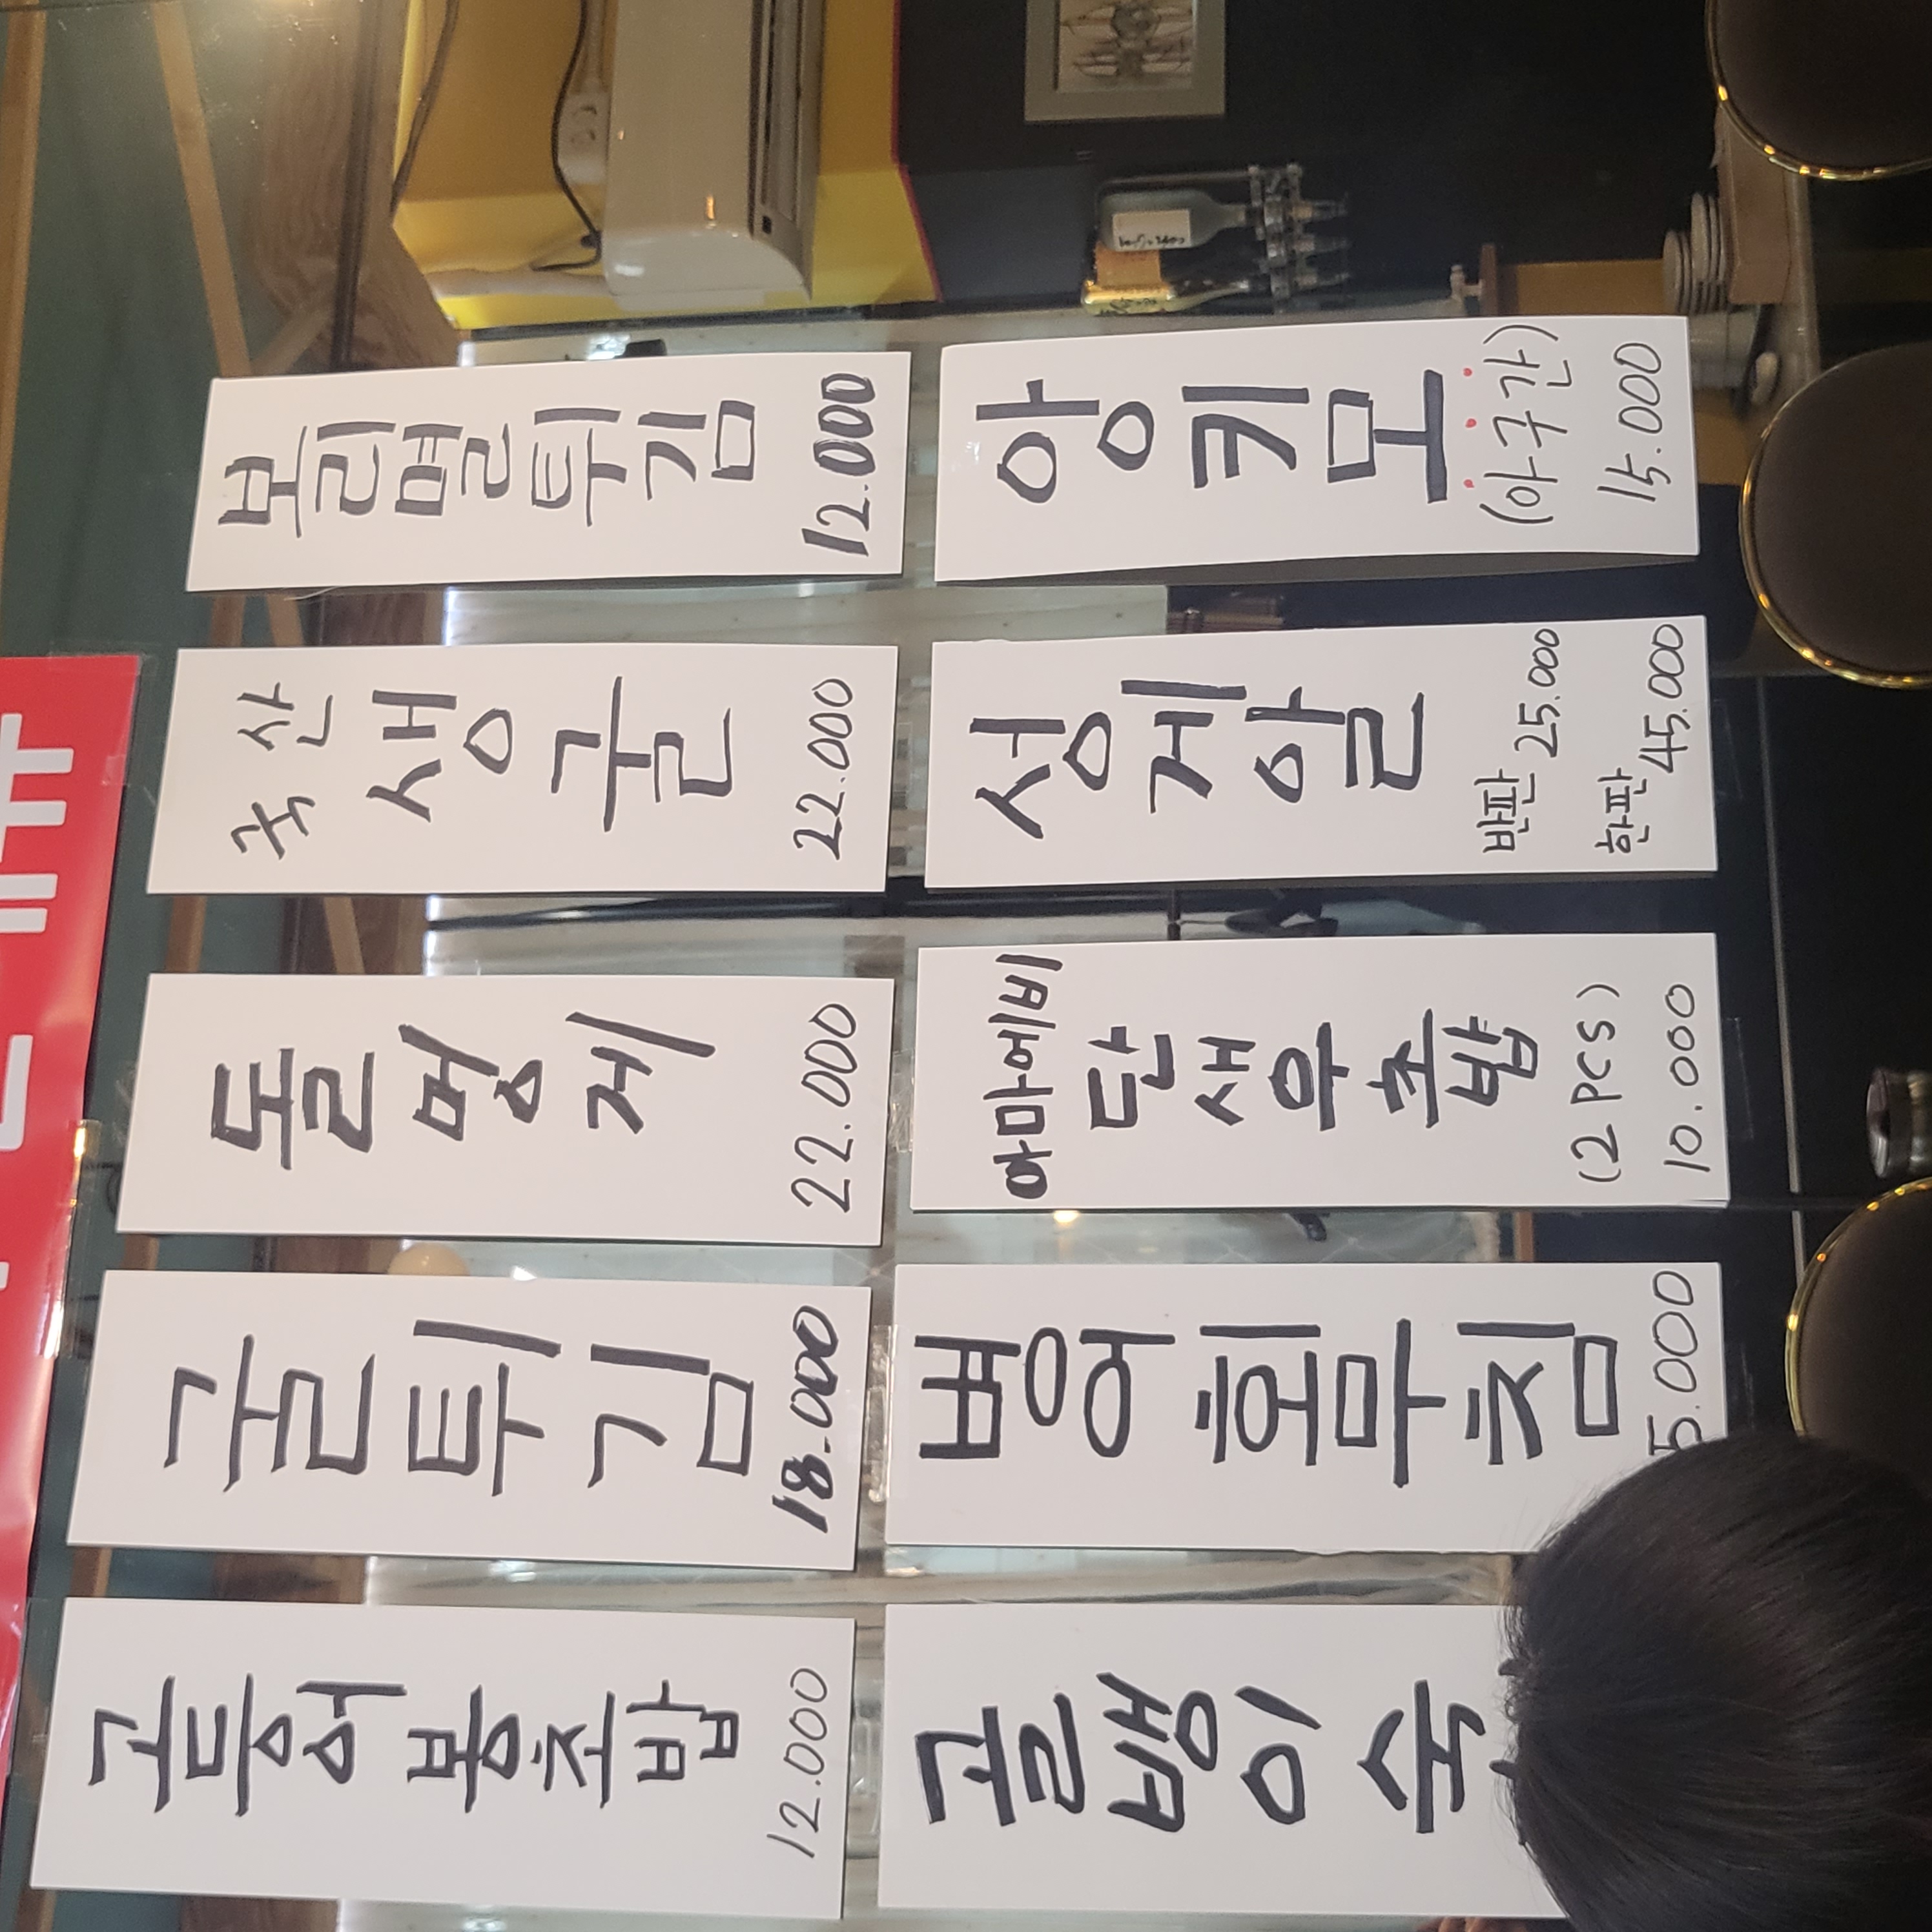 고등어봉초밥
12.000
굴튀김
18.000
돌멍게
22.000
국산
생굴
22.000
보리멸튀김
12.000
골뱅이
병어회무침
아마에비
단새우초밥
(2 PCS)
10.000
성게알
반판 25.000
한판 45.000
앙키모
(아구간)
15.000